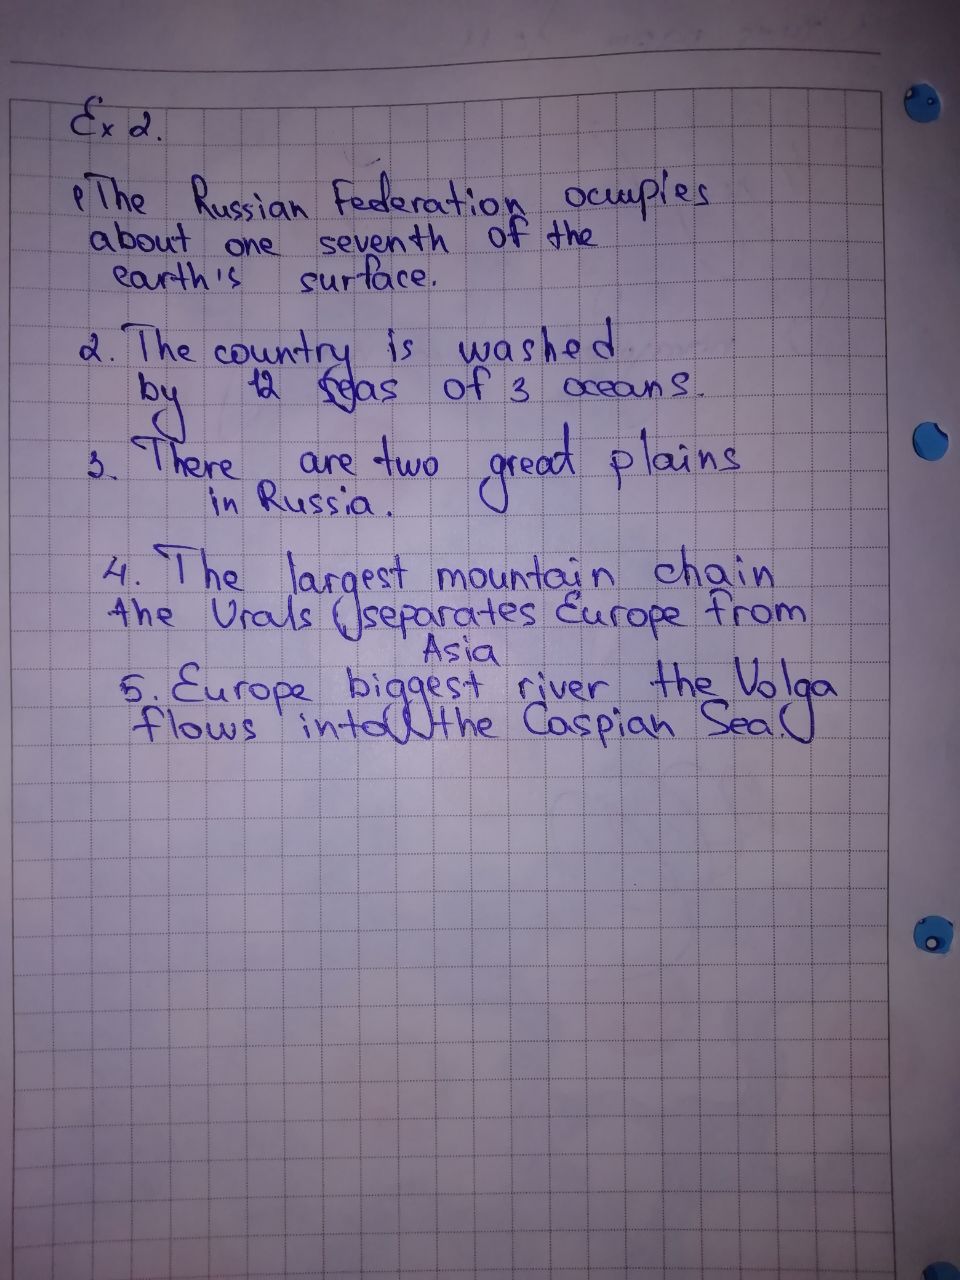 Ex 2.
1 The Russian Federation ocupies
about one seventh of the
earth's surface.
2. The country is washed
by 12 seas of 3 oceans.
3. There are two great plains
in Russia.
4. The largest mountain chain
the Urals separates Europe from
Asia
5. Europe biggest river the Volga
flows into the Caspian Sea.